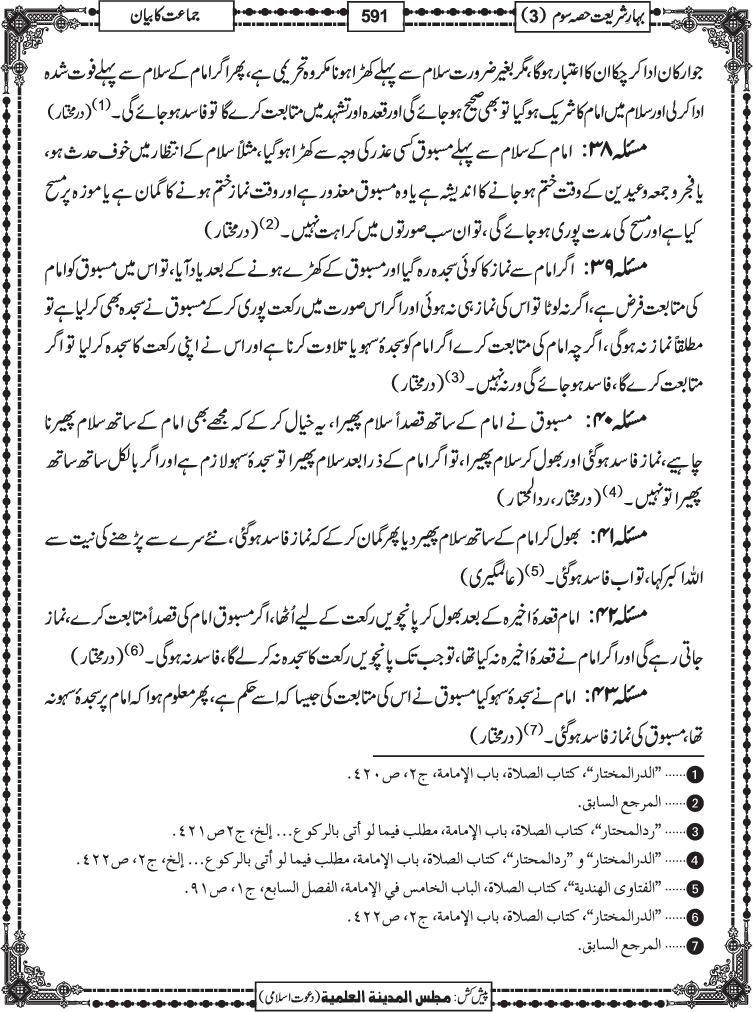 بہار شریعت حصہ سوم (3)
591
جماعت کا بیان
جو ارکان ادا کر چکا ان کا اعتبار ہوگا، مگر بغیر ضرورت سلام سے پہلے کھڑا ہونا مکروہ تحریمی ہے، پھر اگر امام کے سلام سے پہلے فوت شدہ
ادا کر لی اور سلام میں امام کا شریک ہوگیا تو بھی صحیح ہو جائے گی اور قعدہ اور تشہد میں متابعت کرے گا تو فاسد ہو جائے گی۔ (1) (درمختار)
مسئلہ ۳۸: امام کے سلام سے پہلے مسبوق کسی عذر کی وجہ سے کھڑا ہوگیا، مثلاً سلام کے انتظار میں خوف حدث ہو،
یا فجر و جمعہ و عیدین کے وقت ختم ہو جانے کا اندیشہ ہے یا وہ مسبوق معذور ہے اور وقت نماز ختم ہونے کا گمان ہے یا موزہ پر مسح
کیا ہے اور مسح کی مدت پوری ہو جائے گی، تو ان سب صورتوں میں کراہت نہیں۔ (2) (درمختار)
مسئلہ ۳۹: اگر امام سے نماز کا کوئی سجدہ رہ گیا اور مسبوق کے کھڑے ہونے کے بعد یاد آیا، تو اس میں مسبوق کو امام
کی متابعت فرض ہے، اگر نہ لوٹا تو اس کی نماز ہی نہ ہوئی اور اگر اس صورت میں رکعت پوری کر کے مسبوق نے سجدہ بھی کر لیا ہے تو
مطلقاً نماز نہ ہوگی، اگرچہ امام کی متابعت کرے اگر امام کو سجدۂ سہو یا تلاوت کرنا ہے اور اس نے اپنی رکعت کا سجدہ کر لیا تو اگر
متابعت کرے گا، فاسد ہو جائے گی ورنہ نہیں۔ (3) (درمختار)
مسئلہ ۴۰: مسبوق نے امام کے ساتھ قصداً سلام پھیرا، یہ خیال کر کے کہ مجھے بھی امام کے ساتھ سلام پھیرنا
چاہیے، نماز فاسد ہوگئی اور بھول کر سلام پھیرا، تو اگر امام کے ذرا بعد سلام پھیرا تو سجدۂ سہو لازم ہے اور اگر بالکل ساتھ ساتھ
پھیرا تو نہیں۔ (4) (درمختار، ردالمحتار)
مسئلہ ۴۱: بھول کر امام کے ساتھ سلام پھیر دیا پھر گمان کر کے کہ نماز فاسد ہوگئی، نئے سرے سے پڑھنے کی نیت سے
اللہ اکبر کہا، تو اب فاسد ہوگئی۔ (5) (عالمگیری)
مسئلہ ۴۲: امام قعدۂ اخیرہ کے بعد بھول کر پانچویں رکعت کے لیے اُٹھا، اگر مسبوق امام کی قصداً متابعت کرے، نماز
جاتی رہے گی اور اگر امام نے قعدۂ اخیرہ نہ کیا تھا، تو جب تک پانچویں رکعت کا سجدہ نہ کر لے گا، فاسد نہ ہوگی۔ (6) (درمختار)
مسئلہ ۴۳: امام نے سجدۂ سہو کیا مسبوق نے اس کی متابعت کی جیسا کہ اسے حکم ہے، پھر معلوم ہوا کہ امام پر سجدۂ سہو نہ
تھا، مسبوق کی نماز فاسد ہوگئی۔ (7) (درمختار)
1 ...... "الدرالمختار"، کتاب الصلاة، باب الإمامة، ج٢، ص٤٢٠.
2 ...... المرجع السابق.
3 ...... "ردالمحتار"، کتاب الصلاة، باب الإمامة، مطلب فيما لو أتى بالركوع... إلخ، ج٢ص٤٢١.
4 ...... "الدرالمختار" و "ردالمحتار"، کتاب الصلاة، باب الإمامة، مطلب فيما لو أتى بالركوع... إلخ، ج٢، ص٤٢٢.
5 ...... "الفتاوى الهندية"، كتاب الصلاة، الباب الخامس في الإمامة، الفصل السابع، ج١، ص٩١.
6 ...... "الدرالمختار"، كتاب الصلاة، باب الإمامة، ج٢، ص٤٢٢.
7 ...... المرجع السابق.
پیش کش: مجلس المدینة العلمیة (دعوت اسلامی)